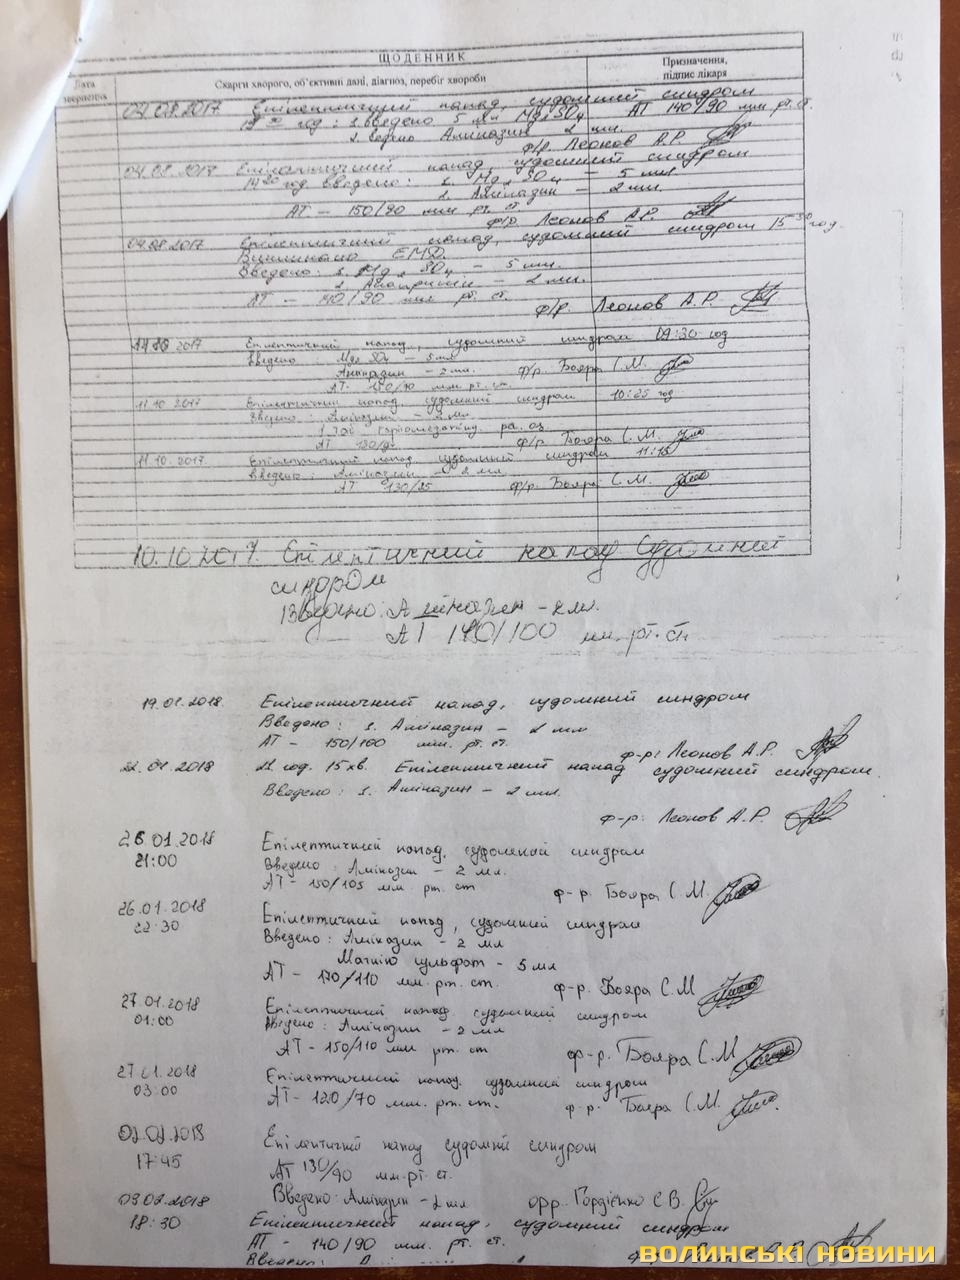 ЩОДЕННИК
Дата звернення
Скарги хворого, об'єктивні дані, діагноз, перебіг хвороби
Призначення, підпис лікаря
04.08.2017 Епілептичний напад, судомний синдром
год: 1. введено 5 мл MgSO4 АТ 140/90 мм.рт.ст.
2. ведено Аміназин 2 мл.
ф/р Леонов А.Р.
04.08.2017 Епілептичний напад, судомний синдром
год введено: 1. MgSO4 – 5 мл
2. Аміназин – 2 мл.
АТ – 150/90 мм рт. ст.
ф/р. Леонов А.Р.
04.08.2017 Епілептичний напад, судомний синдром 15 30 год.
Викликано ЕМД.
Введено: 1. MgSO4 – 5 мл
2. – 2 мл.
АТ – 140/90 мм рт. ст.
ф/р. Леонов А.Р.
2017 Епілептичний напад, судомний синдром 09:30 год
Введено: MgSO4 – 5 мл
Аміназин – 2 мл. ф/р. Бояра С.М.
АТ – мм.рт.ст.
11.10.2017 Епілептичний напад, судомний синдром 10:25 год
Введено: Аміназин – 2 мл
АТ ф/р. Бояра С.М.
11.10.2017. Епілептичний напад, судомний синдром 11:15
Введено: Аміназин – 2 мл
АТ 130/85 ф/р. Бояра С.М.
10.10.2017. Епілептичний напад Судомний
синдром
Введено: Аміназин – 2 мл.
АТ /100 мм.рт.ст
19.01.2018. Епілептичний напад, судомний синдром
Введено: 1. Аміназин – 2 мл
АТ – 150/100 мм. рт. ст.
ф-р: Леонов А.Р.
22.01.2018 год. 15 хв. Епілептичний напад судомний синдром.
Введено: 1. Аміназин – 2 мл.
ф-р. Леонов А.Р.
26.01.2018 Епілептичний напад, судомний синдром
21:00 Введено: Аміназин – 2 мл.
АТ – 150/105 мм. рт. ст ф-р. Бояра С.М.
26.01.2018 Епілептичний напад, судомний синдром
22:30 Введено: Аміназин – 2 мл
Магнію сульфат – 5 мл
АТ – 170/110 мм. рт. ст. ф-р. Бояра С.М
27.01.2018 Епілептичний напад, судомний синдром
01:00 Введено: Аміназин – 2 мл
АТ – 150/110 мм. рт. ст ф-р. Бояра С.М
27.01.2018 Епілептичний напад, судомний синдром
03:00 АТ – 120/70 мм. рт. ст. ф-р. Бояра С.М.
02.02.2018 Епілептичний напад судомний синдром
17:45 АТ 130/90 мм.рт.ст.
Введено: Аміназин – 2 мл Гордієнко С.В.
03.02.2018 Епілептичний напад, судомний синдром
18:30 АТ – 140/90 мм. рт. ст.
ВОЛИНСЬКІ НОВИНИ